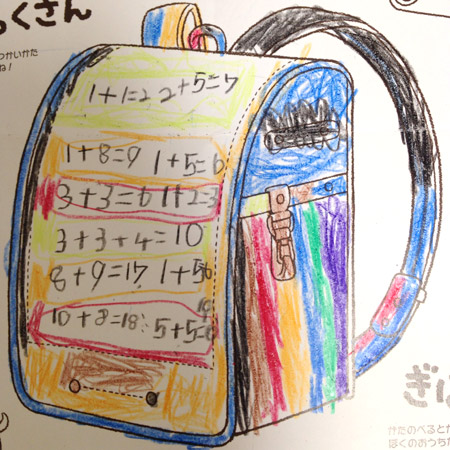 っくさん
つかいかた
ね！
1+1=2 2+5=7
1+8=9 1+5=6
3+3=6 1+2=3
3+3+4=10
8+9=17 1+5=6
10+8=18 5+5=10
ぎ
かたのべるとか
ぼくのおうちか